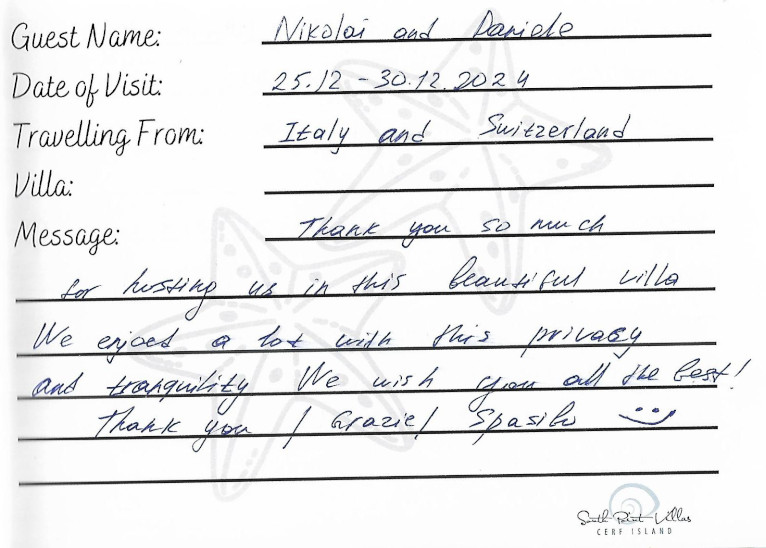 Guest Name: Nikolai and Daniele
Date of Visit: 25.12 - 30.12.2024
Travelling From: Italy and Switzerland
Villa:
Message: Thank you so much
for hosting us in this beautiful villa
We enjoed a lot with this privacy
and tranquility We wish you all the best!
Thank you / Grazie / Spasibo
South Point Villas
CERF ISLAND